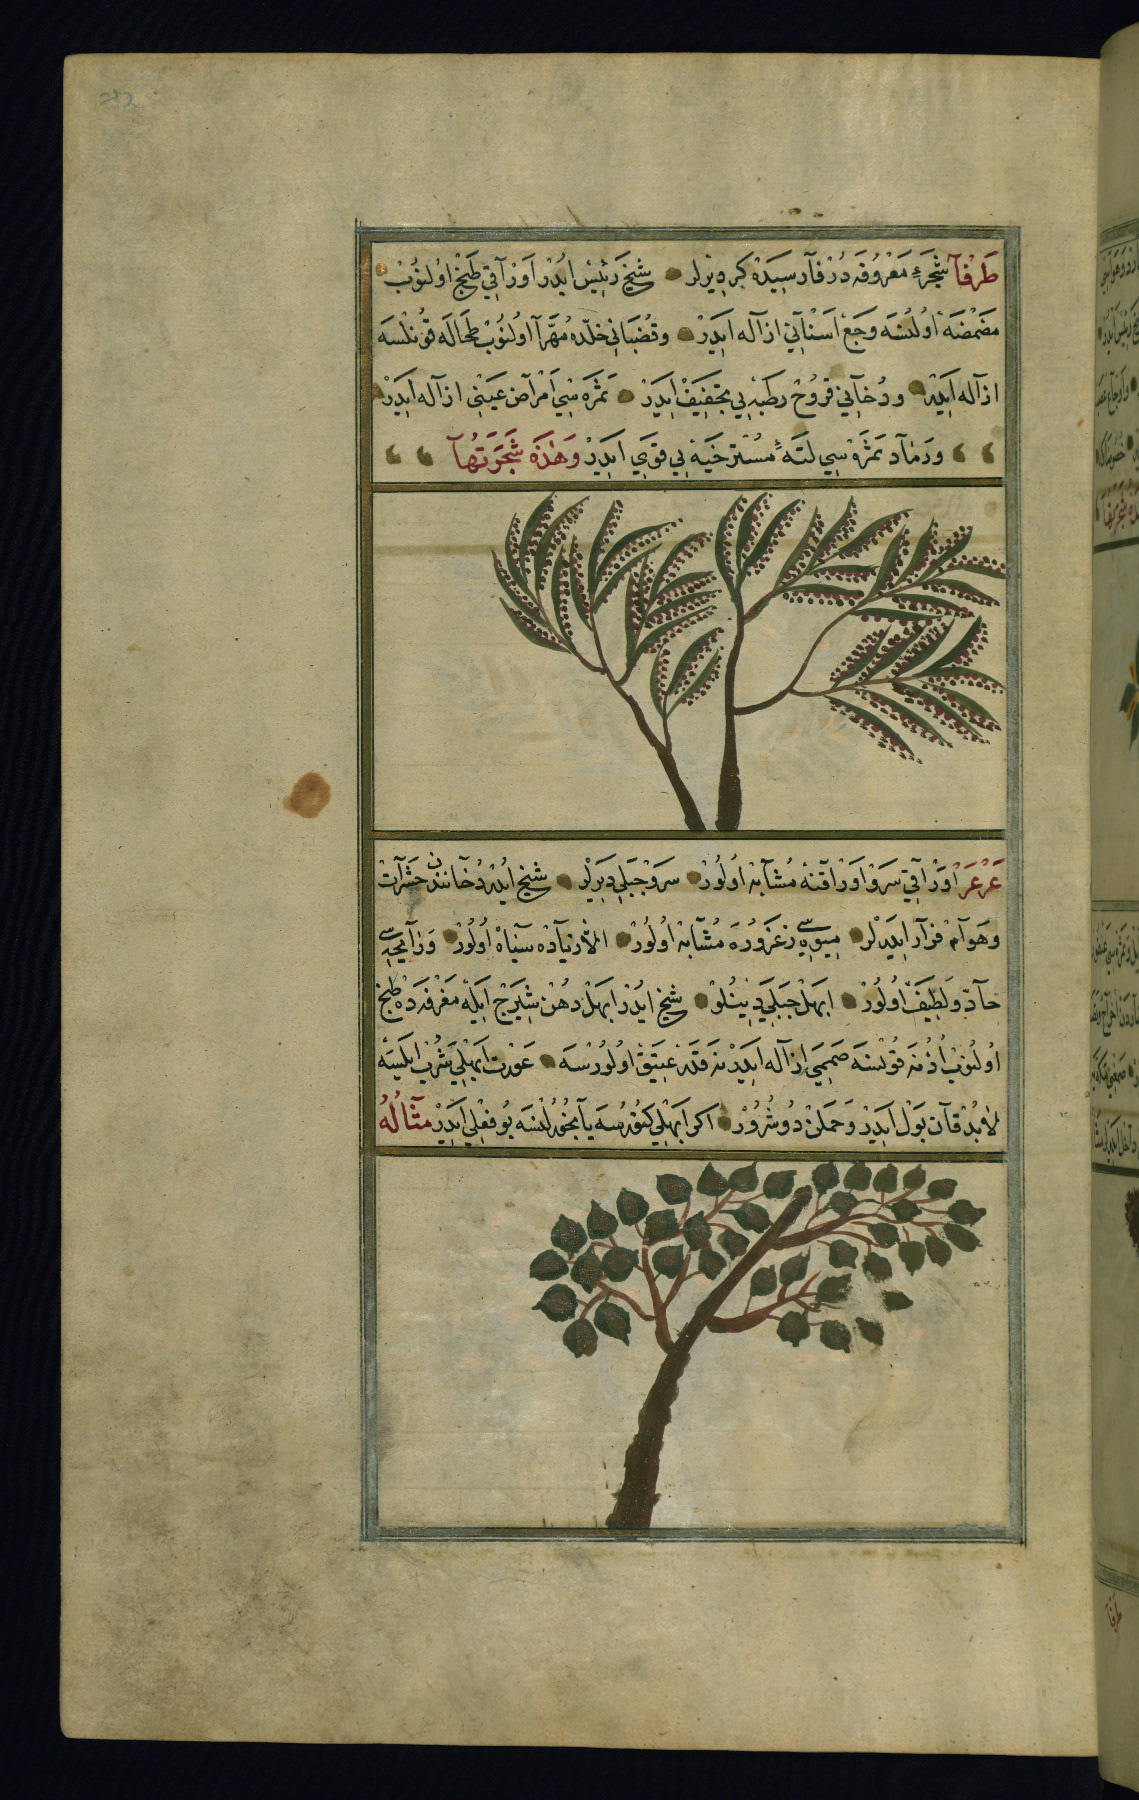 طَرْفَآ شَجَرَۀِ مَعْرُوفَه دُرْ فَارسِیدَه کز دِیْرلر شیخ رَئِیسْ ایُدْر اَوْرَاقِی طَبْخ اوُلنوُبْ
مَضمْضَه اوُلنسَه وَجَع اَسْنَانِی ازاله ایَدرْ وقُضْبَانی خلّده مُهَرَّا اوُلنوُبْ طحاله قونلسَه
ازاله ایَدْر ودُخانی قروُح رطبَه یی تجفِیفْ ایَدرْ ثَمَرَه سِی اَمْراض عَیْنی ازاله ایَدرْ
ورَمَاد ثمَرَه سِی لثَهٔ مُسْتَرخیَه یی قوی ایَدرْ وَهٰذِه شَجَرَتُهَا
عَرْعَرْ اَوْرَاقِی سَرْو اَوْرَاقنَه مُشَابِهْ اوُلوُرْ سَرْو جَبَلی دِیَرلر شیخ ایُدْر دُخَانندن حَشَرات
وهَوَامّ فرار ایَدرلر مِیوَه سِی زعرُورَه مُشَابِهْ اوُلوُرْ الّا زیَادَه سیَاه اوُلوُرْ وَرایحَه سی
حادّ ولطِیفْ اوُلوُرْ ابهَلْ جبَلی دِینلوُرْ شیخ ایُدرْ ابهَلْ دهُن شیرَج ایله مغرفه ده طبخ
اوُلنوُبْ اُذُنَه قوُنلسَه صَمَمی ازاله ایَدرْ نه قدَر عَتِیقْ اوُلورْسَه عَورت ابهلی شُرْب ایلسَه
لابُدْ قان بَوْل ایَدرْ وَحملنْ دوُشرُرْ اکر ابهلی کتورسَه یا بخورْلنسَه بو فعلی ایَدرْ مثَالُهُ